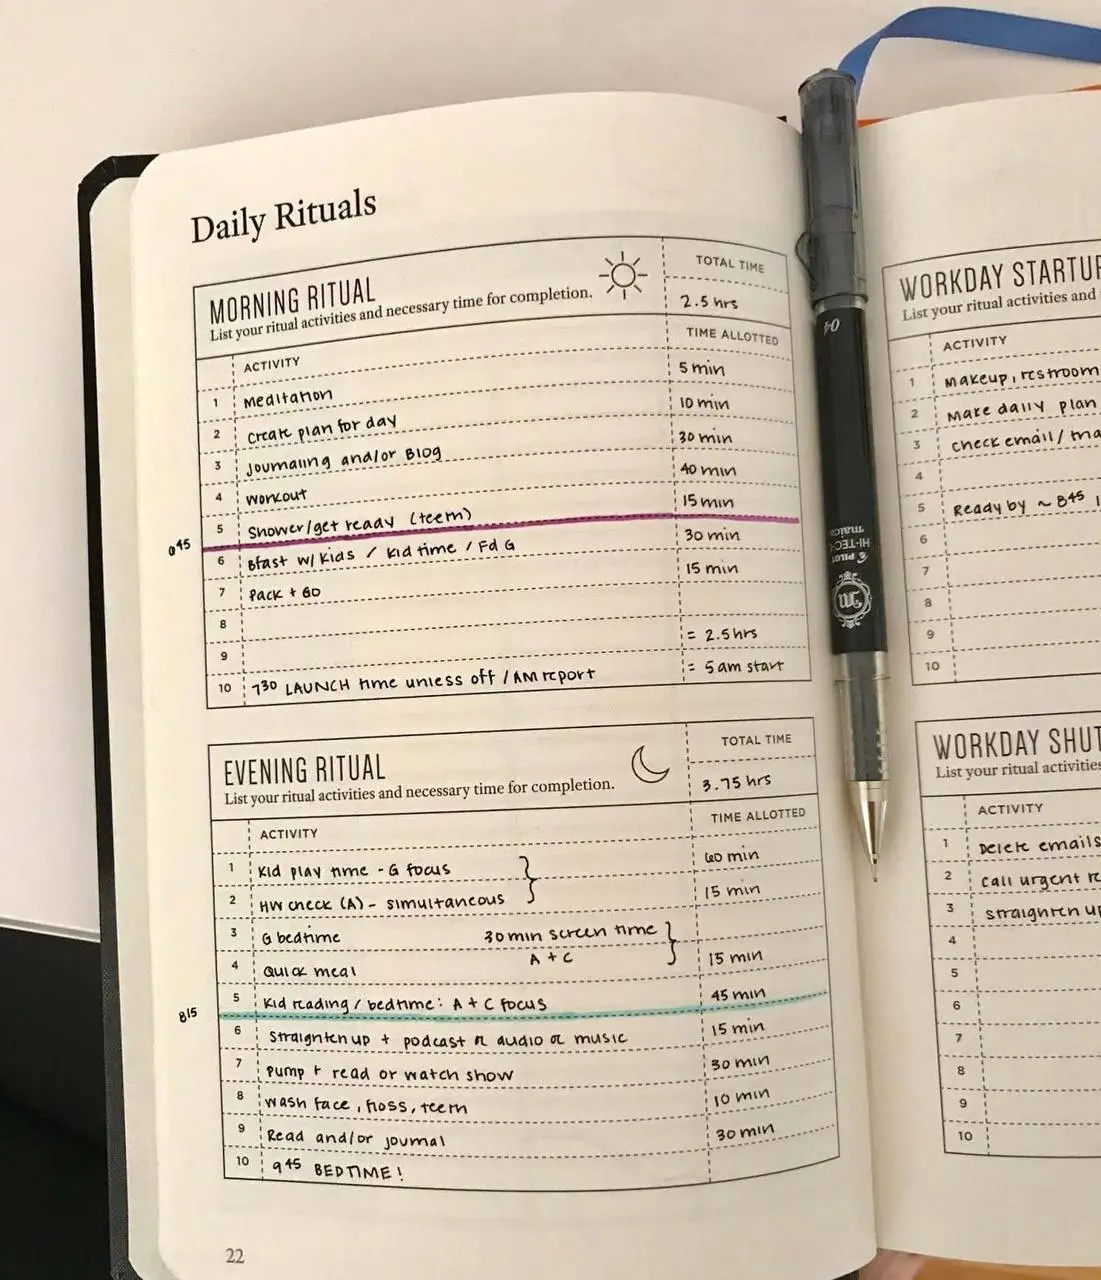 Daily Rituals
MORNING RITUAL
List your ritual activities and necessary time for completion.
TOTAL TIME
2.5 hrs
ACTIVITY
TIME ALLOTTED
1 Meditation 5 min
2 Create plan for day 10 min
3 Journaling and/or Blog 30 min
4 Workout 40 min
5 Shower/get ready (teeth) 15 min
45
6 Bfast w/ Kids / Kid time / Fd G 30 min
7 Pack + GO 15 min
8
9 = 2.5 hrs
10 730 LAUNCH time unless off / AM report = 5am start
EVENING RITUAL
List your ritual activities and necessary time for completion.
TOTAL TIME
3.75 hrs
ACTIVITY
TIME ALLOTTED
1 Kid play time - G focus 60 min
2 HW check (A) - simultaneous 15 min
3 G bedtime 30 min screen time
A + C
4 Quick meal 15 min
5 Kid reading / bedtime: A + C focus 45 min
815
6 Straighten up + podcast or audio or music 15 min
7 Pump + read or watch show 30 min
8 Wash face, floss, teeth 10 min
9 Read and/or journal 30 min
10 945 BEDTIME!
22
04
PILOT
HI-TEC-C
maica
WORKDAY STARTUP
List your ritual activities and
ACTIVITY
1 Makeup, restroom
2 Make daily plan
3 Check email/
4
5 Ready by ~ 845
6
7
8
9
10
WORKDAY SHUT
List your ritual activities
ACTIVITY
1 Delete emails
2 Call urgent
3 Straighten up
4
5
6
7
8
9
10